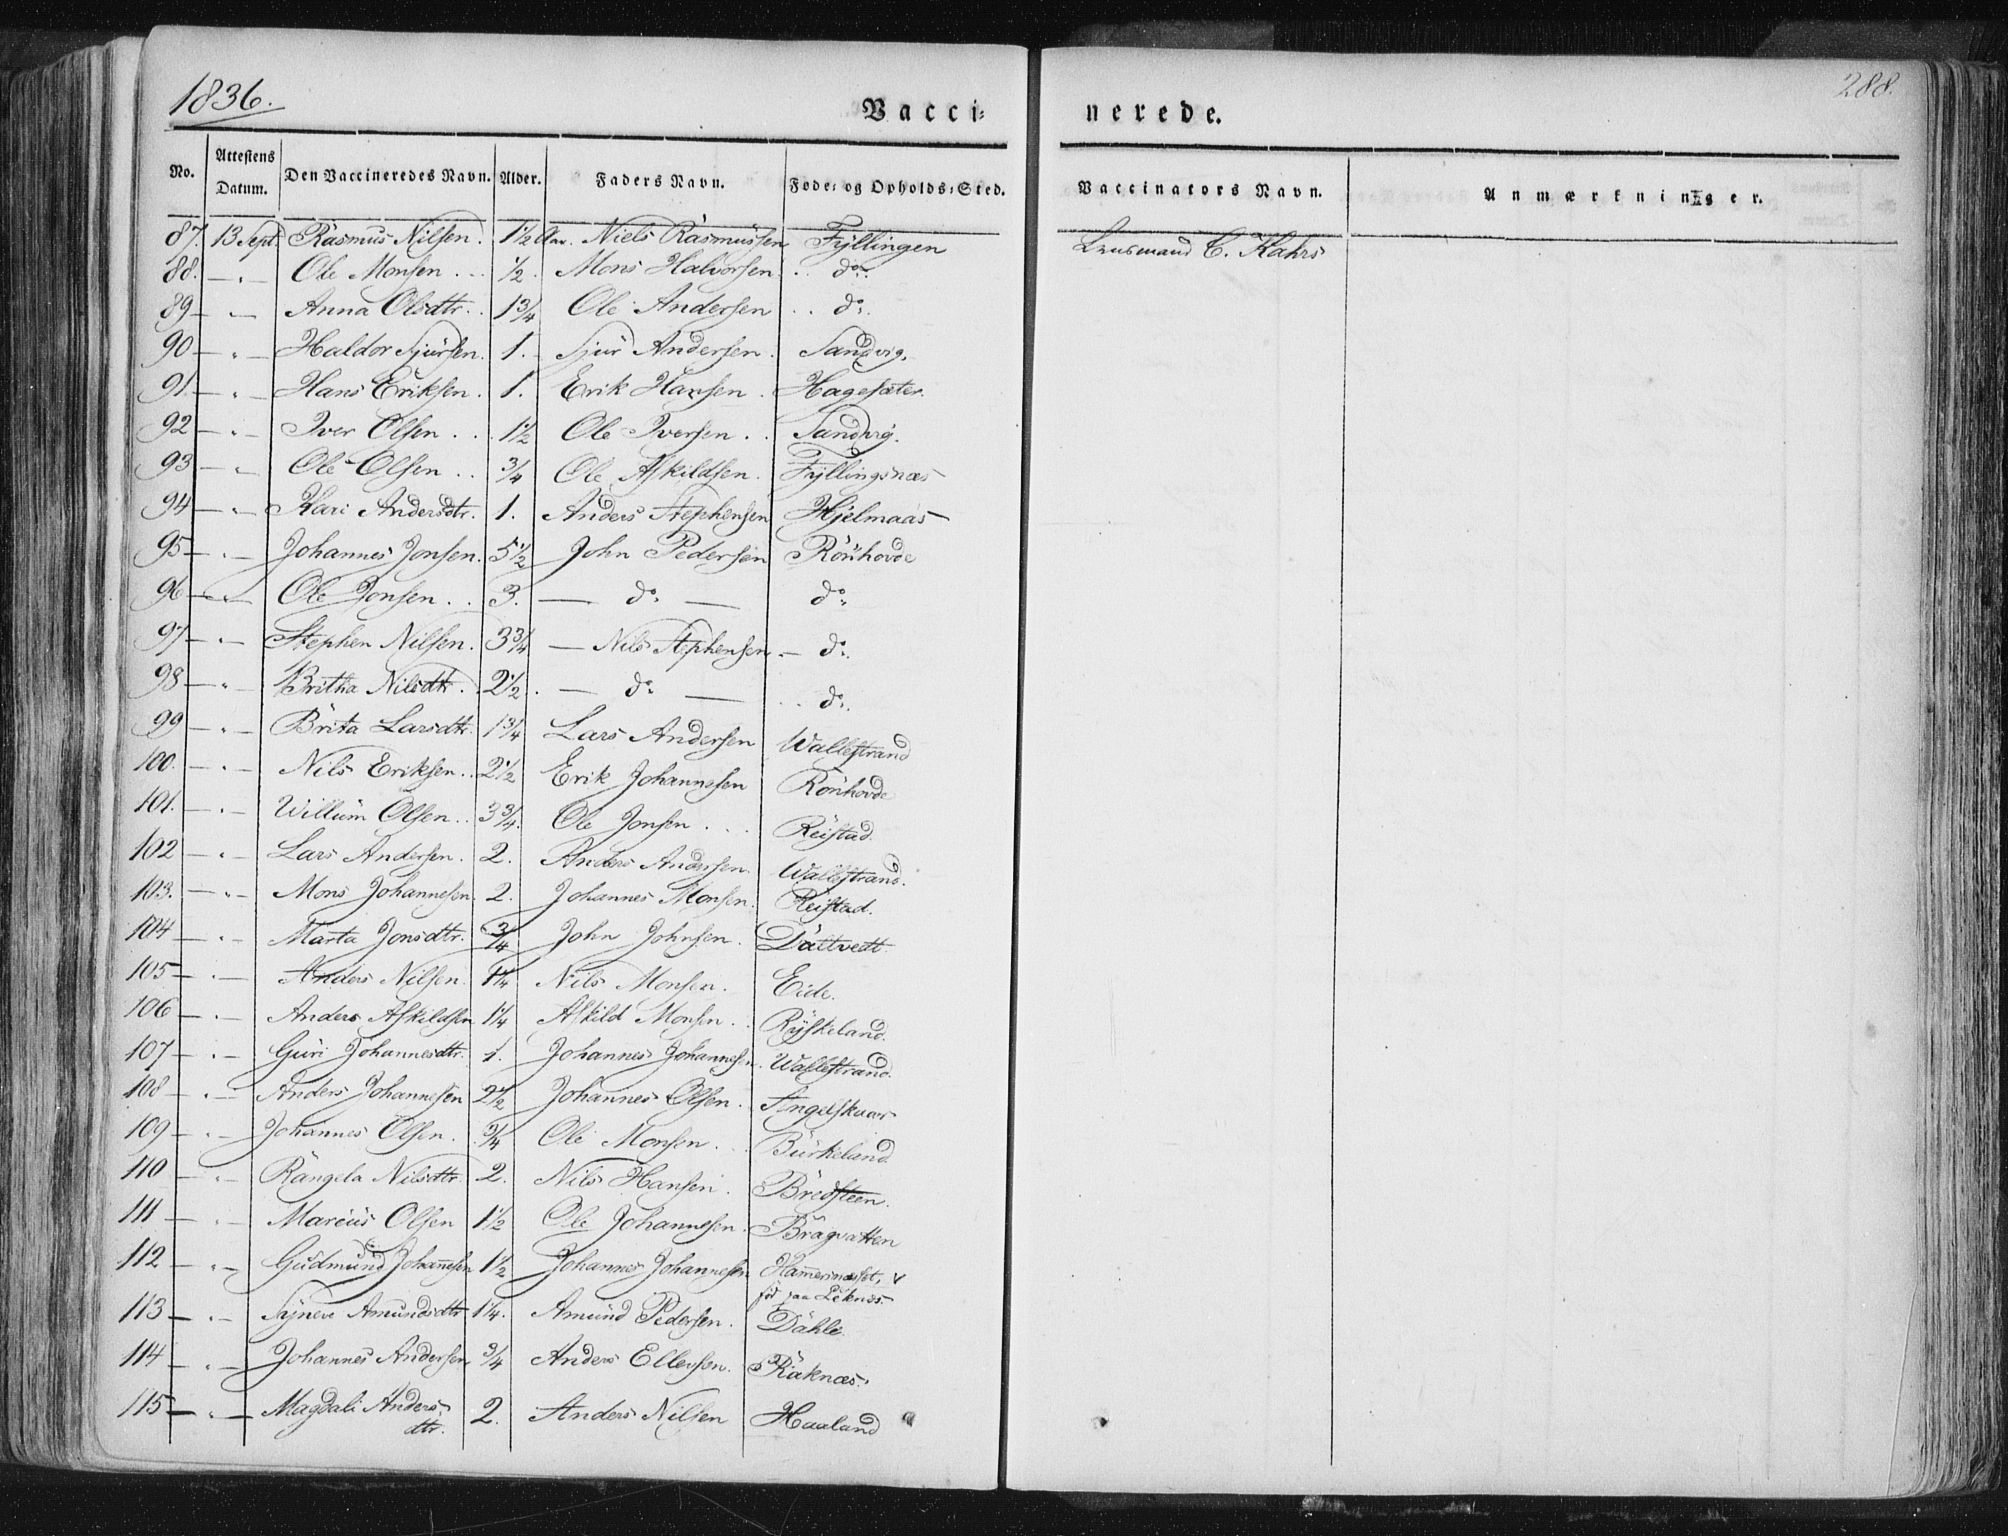 1836.
288.
Vacci=
nerede.
No. Attestens Datum. Den Vaccineredes Navn. Alder. Faders Navn. Føde= og Opholds=Sted.
Vaccinators Navn. Anmærkninger.
87. 13 Sept. Rasmus Nilsen. 1½ Aar. Niels Rasmussen Fyllingen Lensmand C. Kahrs
88. — " — Ole Monsen . . ½. Mons Halvorsen . . do.
89 — " — Anna Olsdtr. . 1¾ Ole Andersen . . do.
90 — " — Haldor Sjursen. 1. Sjur Andersen. Sandvig.
91. — " — Hans Eriksen. 1. Erik Hansen. Hagesæter.
92 — " — Iver Olsen . . 1½ Ole Iversen . . Sandvig.
93 — " — Ole Olsen . . ¾ Ole Askildsen. Fyllingsnæs
94 — " — Kari Andersdtr. 1. Anders Stephensen Hjelmaas
95 — " — Johannes Jonsen. 5½ John Pedersen Rönhovde
96 — " — Ole Jonsen . . 3. — do. — do.
97 — " — Stephen Nilsen. 3¾ — Nils Stephensen — do.
98 — " — Britha Nilsdtr. . 2½. — do. — . . do.
99 — " — Brita Larsdtr. 1¾ Lars Andersen Wallestrand
100. — " — Nils Eriksen. . 2½ Erik Johannesen Rönhovde
101. — " — Willum Olsen . . 3¾. Ole Jonsen . . . Reistad.
102 — " — Lars Andersen. 2. Anders Andersen. Wallestrand.
103. — " — Mons Johannesen. 2. Johannes Monsen. Reistad.
104 — " — Marta Jonsdtr. ¾ John Johnsen. Daltvedt.
105 — " — Anders Nilsen. 1¼ Nils Monsen. Eide.
106 — " — Anders Askildsen 1¼ Askild Monsen . . Ryskeland.
107 — " — Guri Johannesdtr. 1. Johannes Johannesen. Wallestrand.
108 — " — Anders Johannesen 2½ Johannes Olsen. Angelskaar
109 — " — Johannes Olsen. ¾ Ole Monsen . . . Burkeland
110 — " — Rangela Nilsdtr. 2. Nils Hansen. Bredsteen.
111 — " — Marcus Olsen 1½ Ole Johannesen. Bragvatten
112 — " — Gudmund Johannesen 1½ Johannes Johannesen Hamersnæset, v
föd paa Leknes.
113 — " — Syneve Amundsdtr 1¼. Amund Pedersen. Dahle
114 — " — Johannes Andersen ¾ Anders Ellensen. Räknæs.
115 — " — Magdali Anders- 2. Anders Nilsen Haaland
dtr.